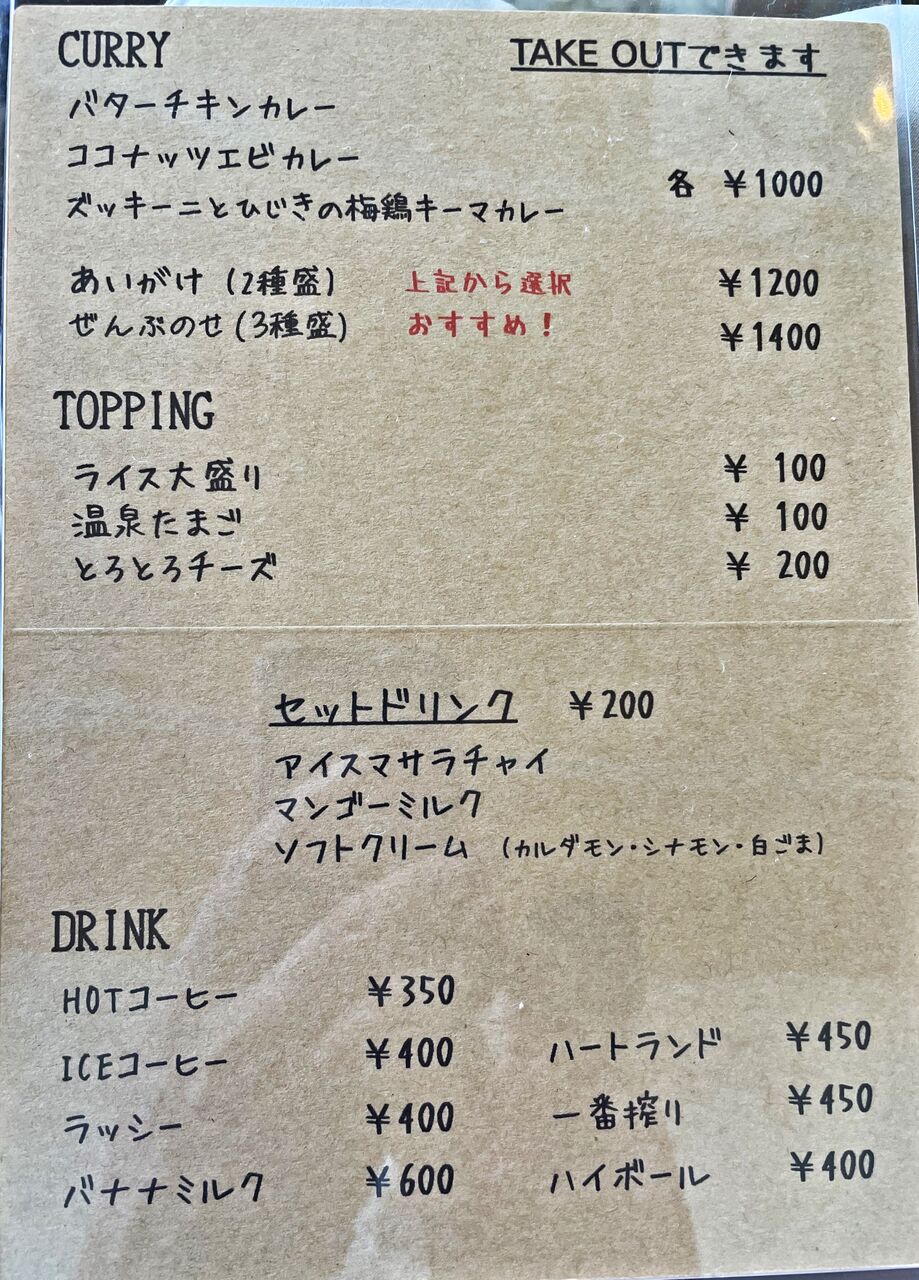 CURRY TAKE OUTできます
バターチキンカレー
ココナッツエビカレー
各 ¥1000
ズッキーニとひじきの梅鶏キーマカレー
あいがけ (2種盛) 上記から選択 ¥1200
ぜんぶのせ (3種盛) おすすめ! ¥1400
TOPPING
ライス大盛り ¥ 100
温泉たまご ¥ 100
とろとろチーズ ¥ 200
セットドリンク ¥200
アイスマサラチャイ
マンゴーミルク
ソフトクリーム (カルダモン・シナモン・白ごま)
DRINK
HOTコーヒー ¥350
ICEコーヒー ¥400
ラッシー ¥400
バナナミルク ¥600
ハートランド ¥450
一番搾り ¥450
ハイボール ¥400